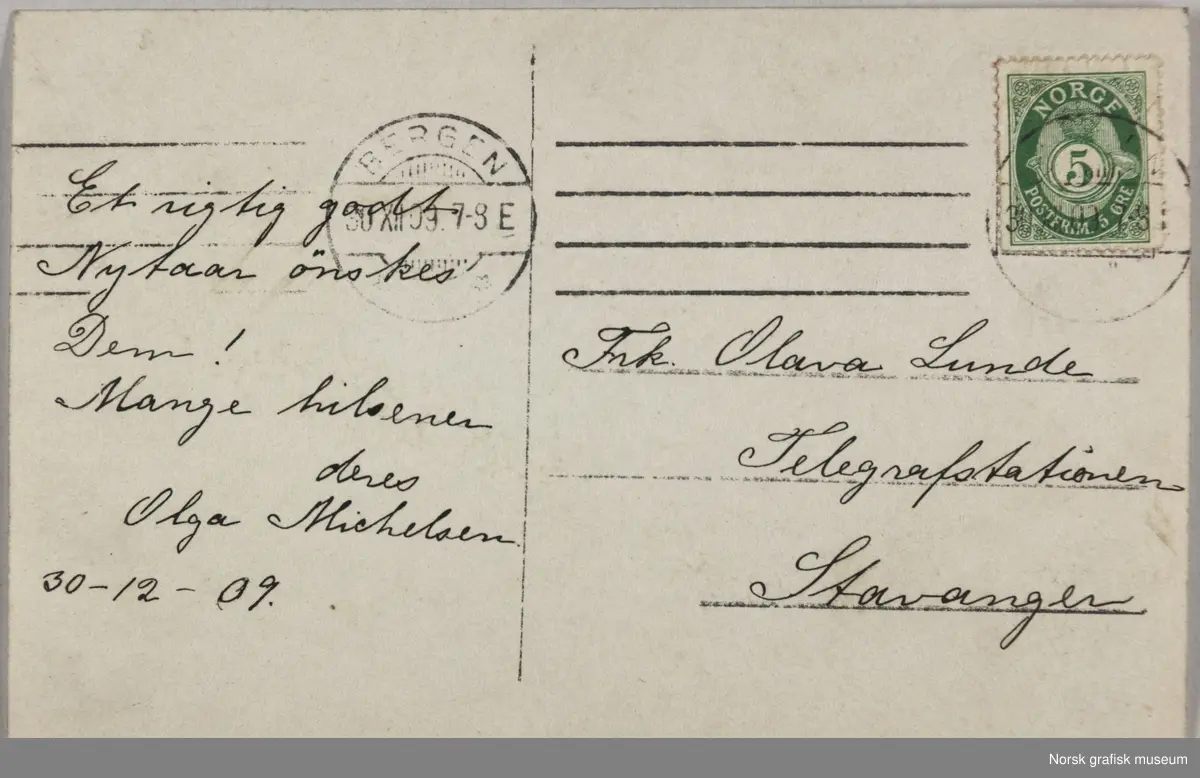 Et rigtig godt
Nytaar önskes
Dem!
Mange hilsener
deres
Olga Michelsen.
30-12-09.
BERGEN
30 XII 09. 7-8 E
NORGE
5
POSTFRIM. ØRE
Frk. Olava Lunde
Telegrafstationen
Stavanger
Norsk grafisk museum